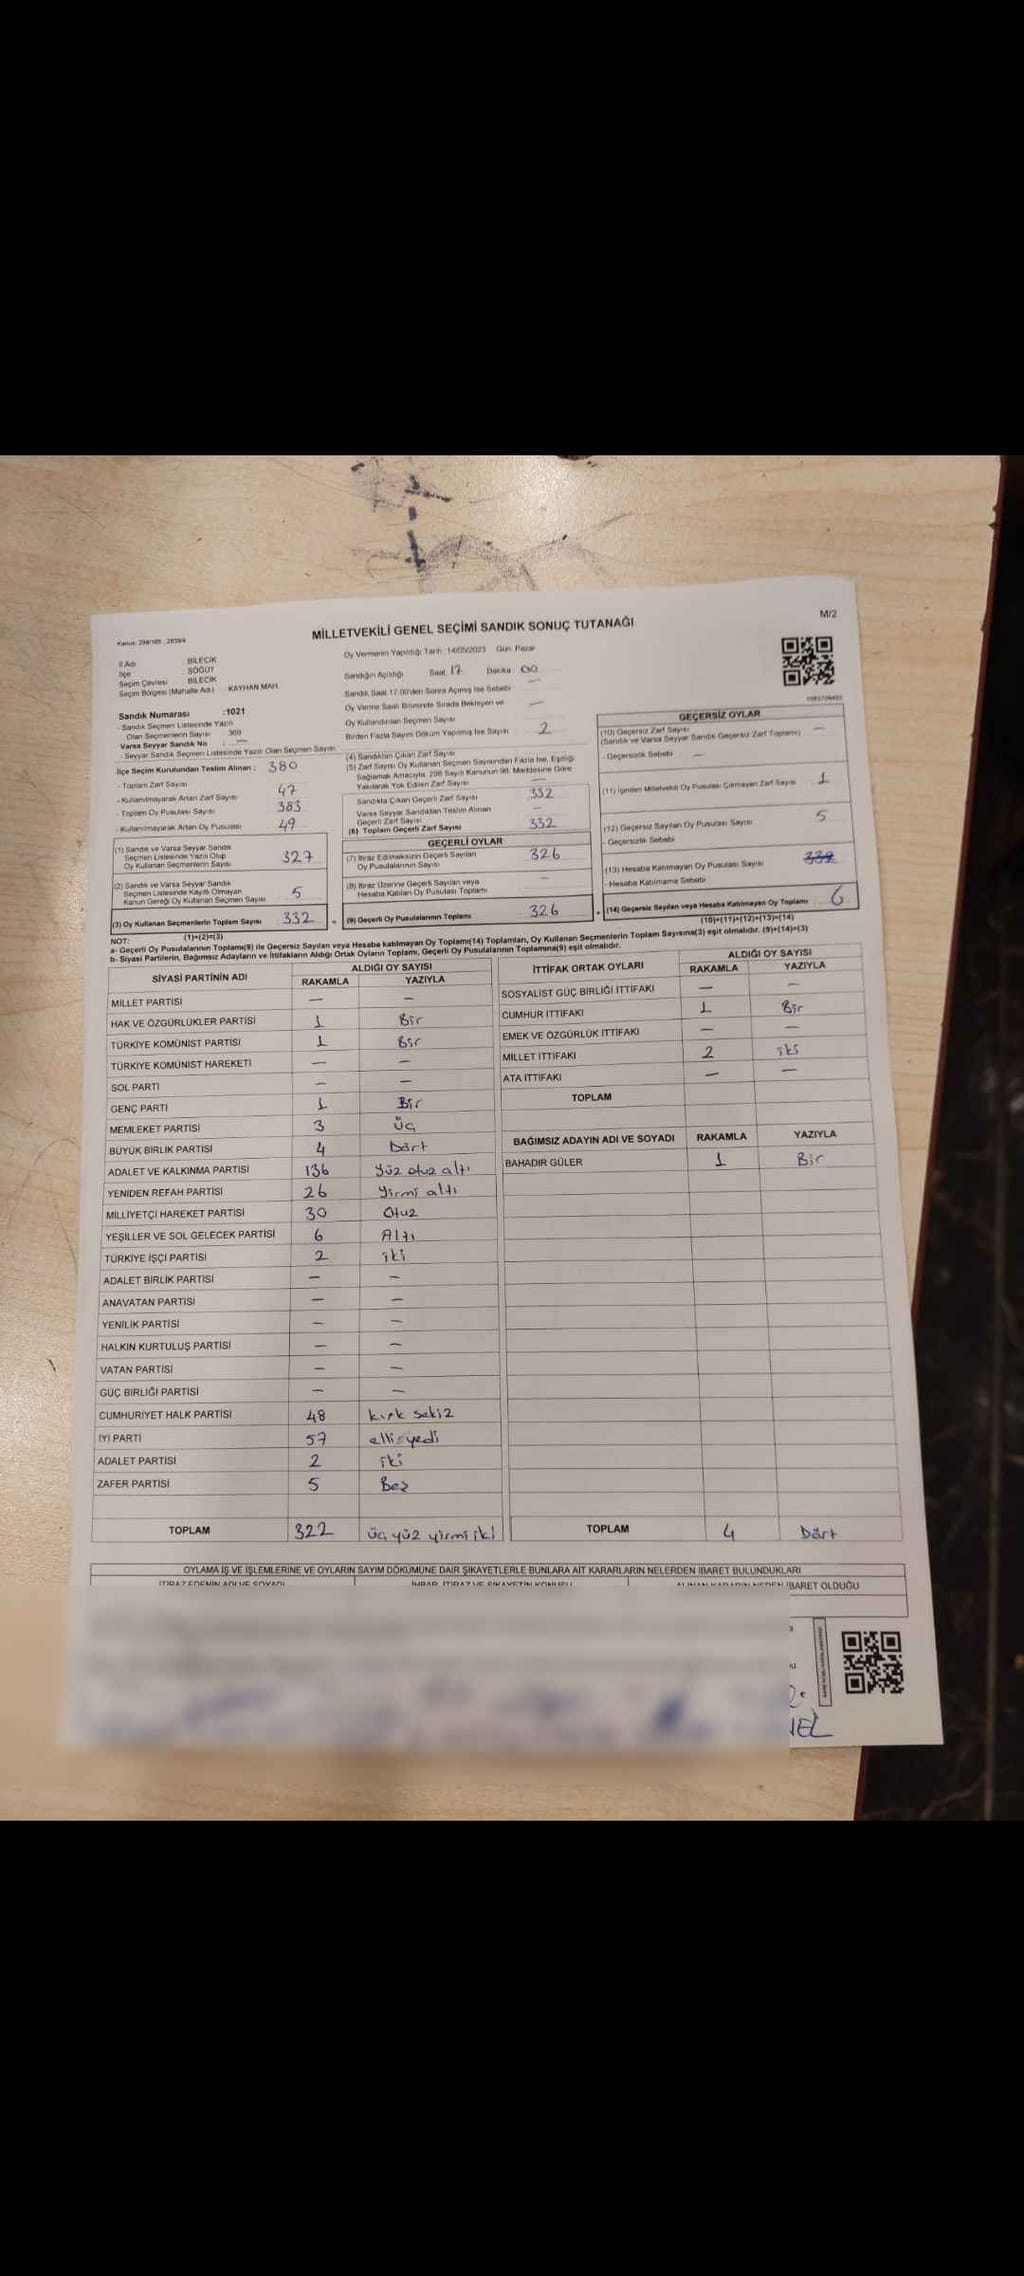 M/2
Kanun: 298/105 , 2839/4
MİLLETVEKİLİ GENEL SEÇİMİ SANDIK SONUÇ TUTANAĞI
İl Adı : BİLECİK
İlçe : SÖĞÜT
Seçim Çevresi : BİLECİK
Seçim Bölgesi (Mahalle Adı) KAYHAN MAH.
Oy Vermenin Yapıldığı Tarih :14/05/2023 Gün: Pazar
Sandığın Açıldığı Saat: 17 Dakika: 00
Sandık Saat 17.00'den Sonra Açılmış İse Sebebi —
Oy Verme Saati Bitiminde Sırada Bekleyen ve
Oy Kullandırılan Seçmen Sayısı —
Birden Fazla Sayım Döküm Yapılmış İse Sayısı 2
Sandık Numarası :1021
- Sandık Seçmen Listesinde Yazılı
Olan Seçmenlerin Sayısı : 369
Varsa Seyyar Sandık No : —
- Seyyar Sandık Seçmen Listesinde Yazılı Olan Seçmen Sayısı
İlçe Seçim Kurulundan Teslim Alınan : 380
- Toplam Zarf Sayısı
- Kullanılmayarak Artan Zarf Sayısı 47
- Toplam Oy Pusulası Sayısı 383
- Kullanılmayarak Artan Oy Pusulası 49
(1) Sandık ve Varsa Seyyar Sandık
Seçmen Listesinde Yazılı Olup
Oy Kullanan Seçmenlerin Sayısı 327
(2) Sandık ve Varsa Seyyar Sandık
Seçmen Listesinde Kayıtlı Olmayan
Kanun Gereği Oy Kullanan Seçmen Sayısı 5
(3) Oy Kullanan Seçmenlerin Toplam Sayısı 332 =
(1)+(2)=(3)
(4) Sandıktan Çıkan Zarf Sayısı
(5) Zarf Sayısı Oy Kullanan Seçmen Sayısından Fazla İse, Eşitliği
Sağlamak Amacıyla, 298 Sayılı Kanunun 98. Maddesine Göre
Yakılarak Yok Edilen Zarf Sayısı —
Sandıkta Çıkan Geçerli Zarf Sayısı 332
Varsa Seyyar Sandıktan Teslim Alınan
Geçerli Zarf Sayısı —
(6) Toplam Geçerli Zarf Sayısı 332
GEÇERLİ OYLAR
(7) İtiraz Edilmeksizin Geçerli Sayılan
Oy Pusulalarının Sayısı 326
(8) İtiraz Üzerine Geçerli Sayılan veya
Hesaba Katılan Oy Pusulası Toplamı —
(9) Geçerli Oy Pusulalarının Toplamı 326 +
GEÇERSİZ OYLAR
(10) Geçersiz Zarf Sayısı —
(Sandık ve Varsa Seyyar Sandık Geçersiz Zarf Toplamı)
- Geçersizlik Sebebi —
(11) İçinden Milletvekili Oy Pusulası Çıkmayan Zarf Sayısı 1
(12) Geçersiz Sayılan Oy Pusulası Sayısı 5
- Geçersizlik Sebebi
(13) Hesaba Katılmayan Oy Pusulası Sayısı 332
- Hesaba Katılmama Sebebi
(14) Geçersiz Sayılan veya Hesaba Katılmayan Oy Toplamı 6
(10)+(11)+(12)+(13)=(14)
NOT:
a- Geçerli Oy Pusulalarının Toplamı(9) ile Geçersiz Sayılan veya Hesaba katılmayan Oy Toplamı(14) Toplamları, Oy Kullanan Seçmenlerin Toplam Sayısına(3) eşit olmalıdır. (9)+(14)=(3)
b- Siyasi Partilerin, Bağımsız Adayların ve İttifakların Aldığı Ortak Oyların Toplamı, Geçerli Oy Pusulalarının Toplamına(9) eşit olmalıdır.
SİYASİ PARTİNİN ADI ALDIĞI OY SAYISI
RAKAMLA YAZIYLA
MİLLET PARTİSİ — —
HAK VE ÖZGÜRLÜKLER PARTİSİ 1 Bir
TÜRKİYE KOMÜNİST PARTİSİ 1 Bir
TÜRKİYE KOMÜNİST HAREKETİ — —
SOL PARTİ — —
GENÇ PARTİ 1 Bir
MEMLEKET PARTİSİ 3 Üç
BÜYÜK BİRLİK PARTİSİ 4 Dört
ADALET VE KALKINMA PARTİSİ 136 Yüz otuz altı
YENİDEN REFAH PARTİSİ 26 Yirmi altı
MİLLİYETÇİ HAREKET PARTİSİ 30 Otuz
YEŞİLLER VE SOL GELECEK PARTİSİ 6 Altı
TÜRKİYE İŞÇİ PARTİSİ 2 iki
ADALET BİRLİK PARTİSİ — —
ANAVATAN PARTİSİ — —
YENİLİK PARTİSİ — —
HALKIN KURTULUŞ PARTİSİ — —
VATAN PARTİSİ — —
GÜÇ BİRLİĞİ PARTİSİ — —
CUMHURİYET HALK PARTİSİ 48 kırk sekiz
İYİ PARTİ 57 elli yedi
ADALET PARTİSİ 2 iki
ZAFER PARTİSİ 5 Beş
TOPLAM 322 üç yüz yirmi iki
İTTİFAK ORTAK OYLARI ALDIĞI OY SAYISI
RAKAMLA YAZIYLA
SOSYALİST GÜÇ BİRLİĞİ İTTİFAKI — —
CUMHUR İTTİFAKI 1 Bir
EMEK VE ÖZGÜRLÜK İTTİFAKI — —
MİLLET İTTİFAKI 2 iki
ATA İTTİFAKI — —
TOPLAM
BAĞIMSIZ ADAYIN ADI VE SOYADI RAKAMLA YAZIYLA
BAHADIR GÜLER 1 Bir
TOPLAM 4 Dört
OYLAMA İŞ VE İŞLEMLERİNE VE OYLARIN SAYIM DÖKÜMÜNE DAİR ŞİKAYETLERLE BUNLARA AİT KARARLARIN NELERDEN İBARET BULUNDUKLARI
İTİRAZ EDENİN ADI VE SOYADI İHBAR, İTİRAZ VE ŞİKAYETİN KONUSU ALINAN KARARIN NEDEN İBARET OLDUĞU
NEL